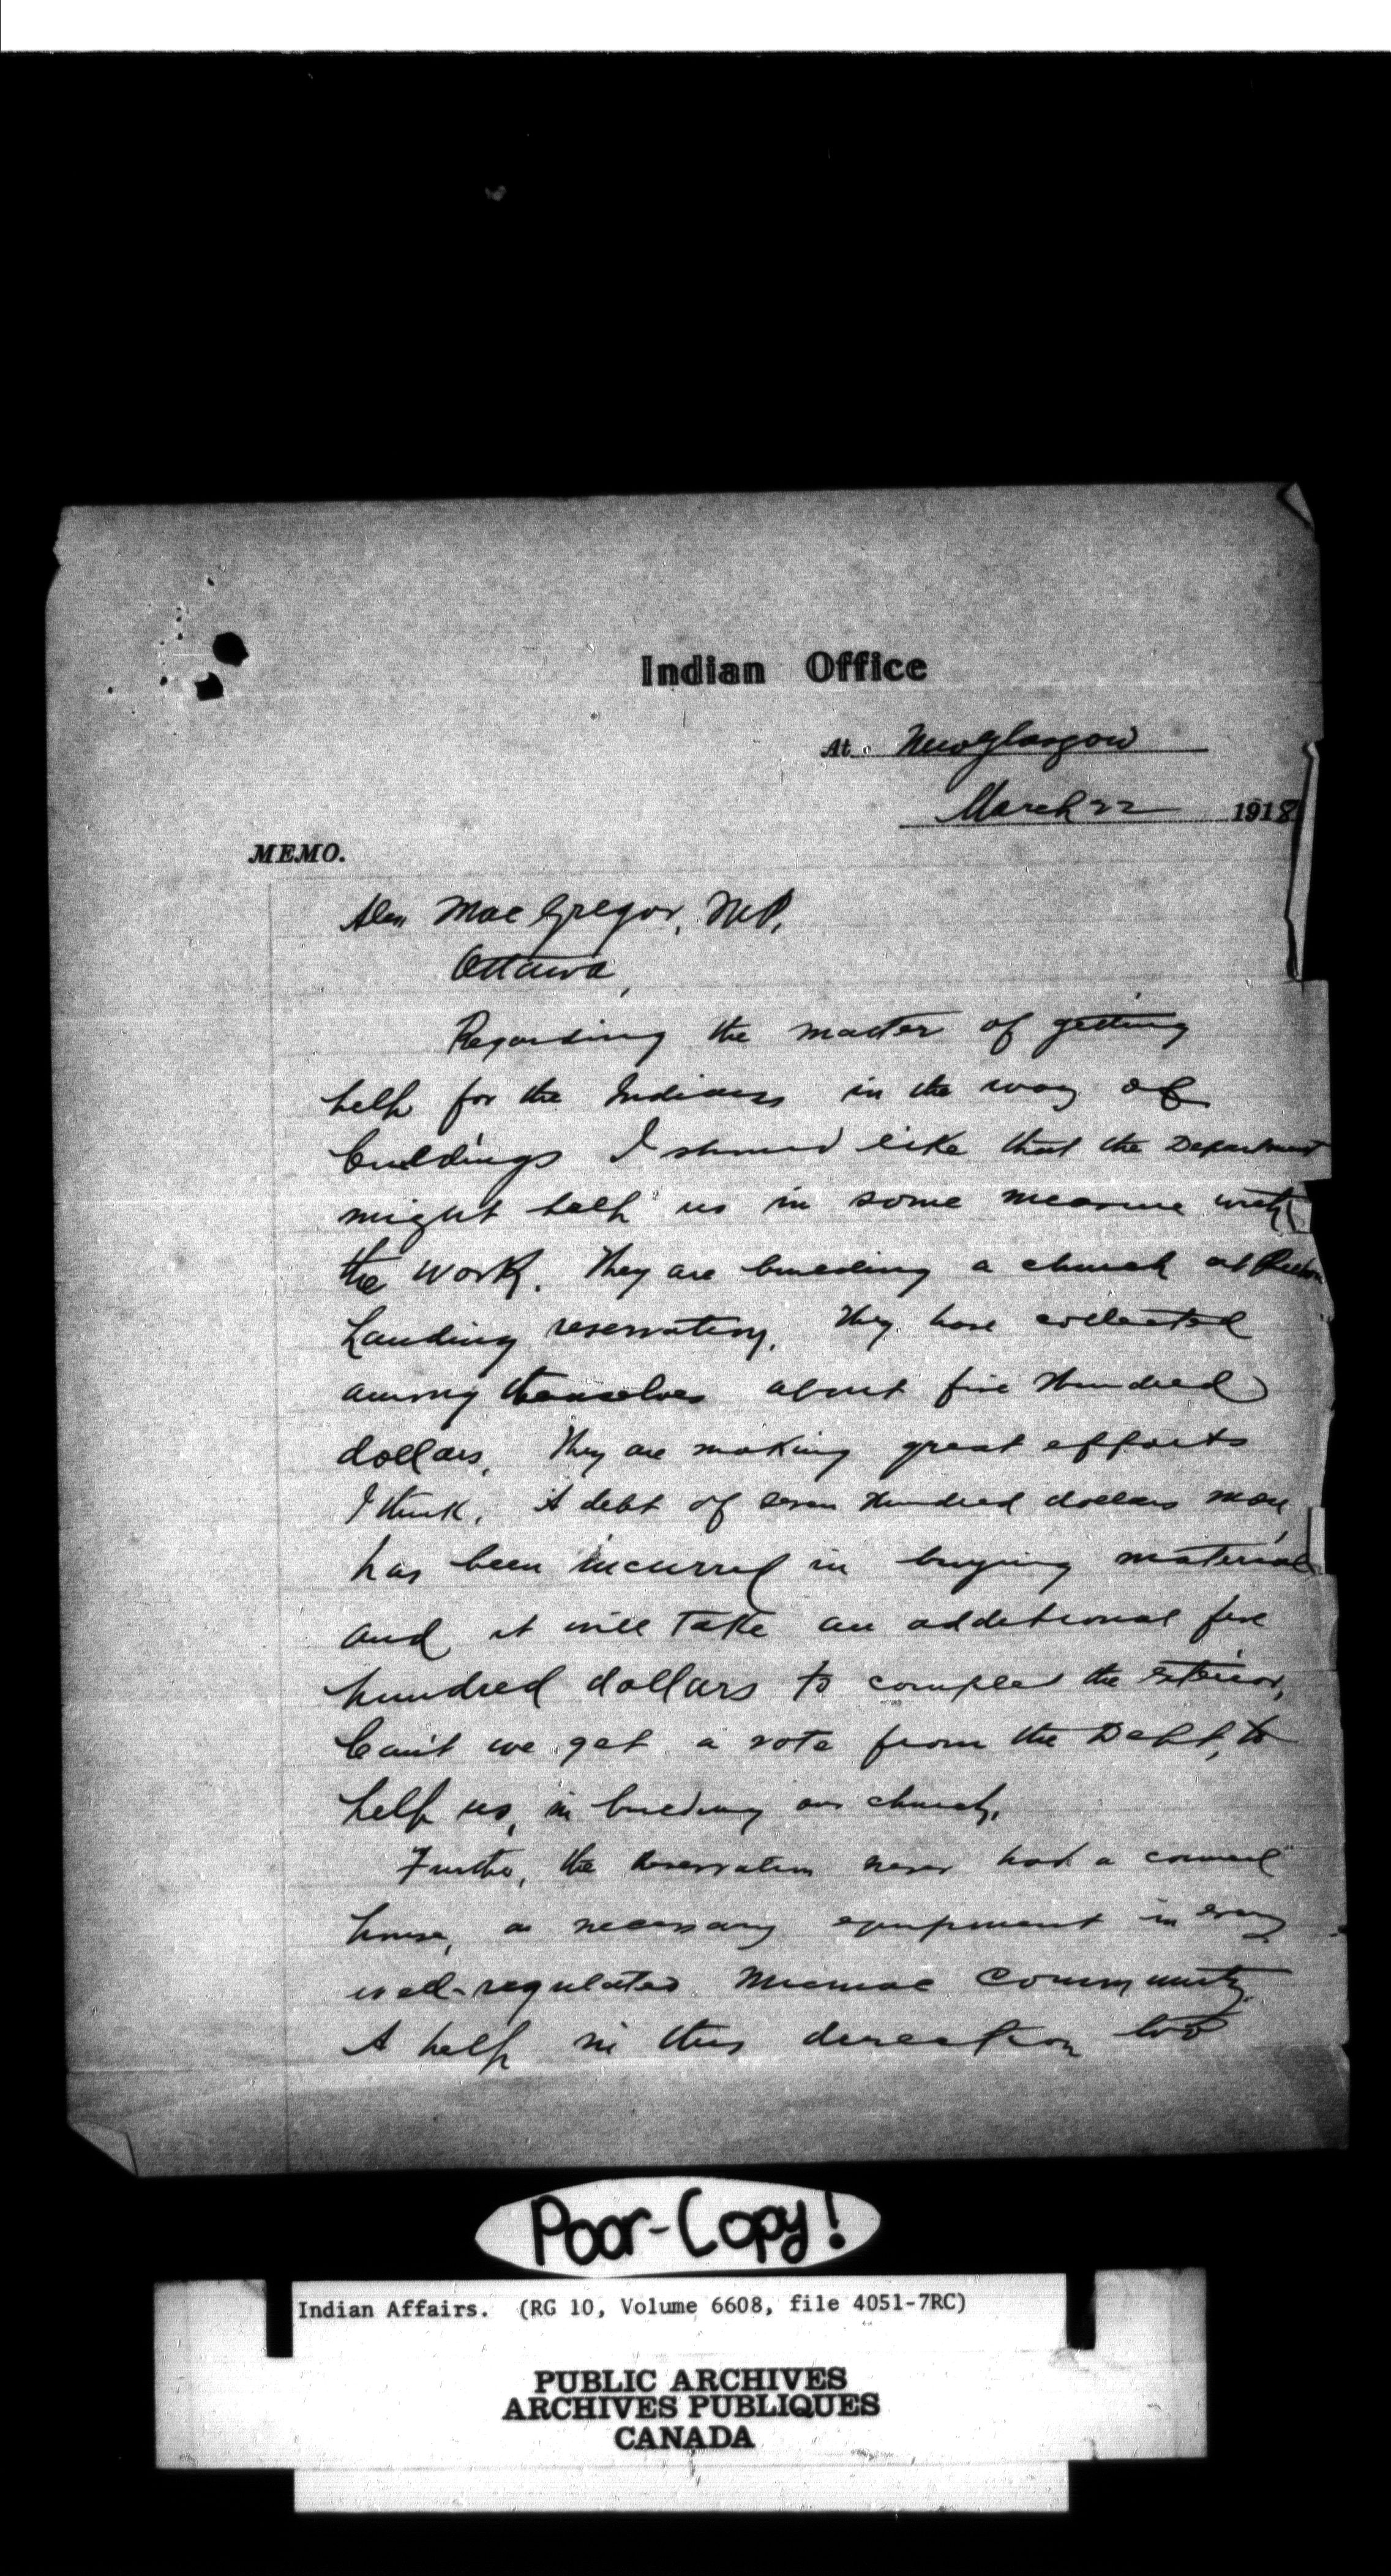 Indian Office
At New Glasgow
March 22 1918
MEMO.
Alex MacGregor, M.P.
Ottawa,
Regarding the matter of getting
help for the Indians in the way of
buildings I should like that the Department
might help us in some measure with
the work. They are building a church at Pictou
Landing reservation. They have collected
among themselves about five hundred
dollars. They are making great efforts
I think. A debt of seven hundred dollars more
has been incurred in buying material
and it will take an additional five
hundred dollars to complete the exterior,
Can't we get a vote from the Dept, to
help us, in building our church,
Further, the reservation never had a council
house, a necessary equipment in every
well-regulated Micmac community.
A help in this direction too
Poor-Copy!
Indian Affairs. (RG 10, Volume 6608, file 4051-7RC)
PUBLIC ARCHIVES
ARCHIVES PUBLIQUES
CANADA